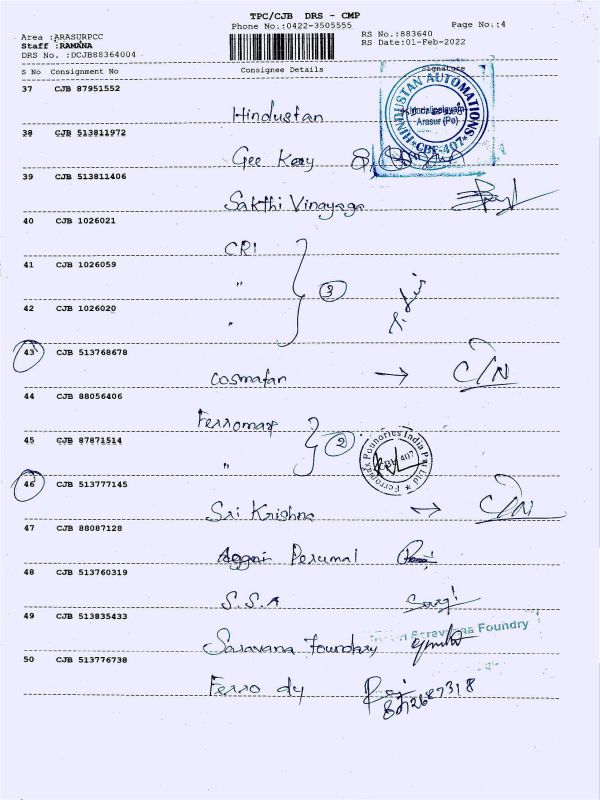 TPC/CJB DRS - CMP
Phone No.:0422-3505555
Page No.:4
Area :ARASURPCC
Staff :RAMANA
DRS No. :DCJB88364004
RS No.:883640
RS Date:01-Feb-2022
S No Consignment No Consignee Details Signature
37 CJB 87951552
Hindustan
HINDUSTAN AUTOMATIONS
Arasur (Po)
CBE-407
38 CJB 513811972
Gee Kay
39 CJB 513811406
Sakthi Vinayaga
40 CJB 1026021
CRI
41 CJB 1026059
"
3
42 CJB 1026020
"
43 CJB 513768678
Cosmafan → C/N
44 CJB 88056406
Ferromax
45 CJB 87871514
"
2
Foundries India Pvt Ltd
407
46 CJB 513777145
Sri Krishna C/N
47 CJB 88087128
Perumal
48 CJB 513760319
S.S.A
49 CJB 513835433
Saravana Foundary
Saravana Foundry
50 CJB 513776738
Ferro dy